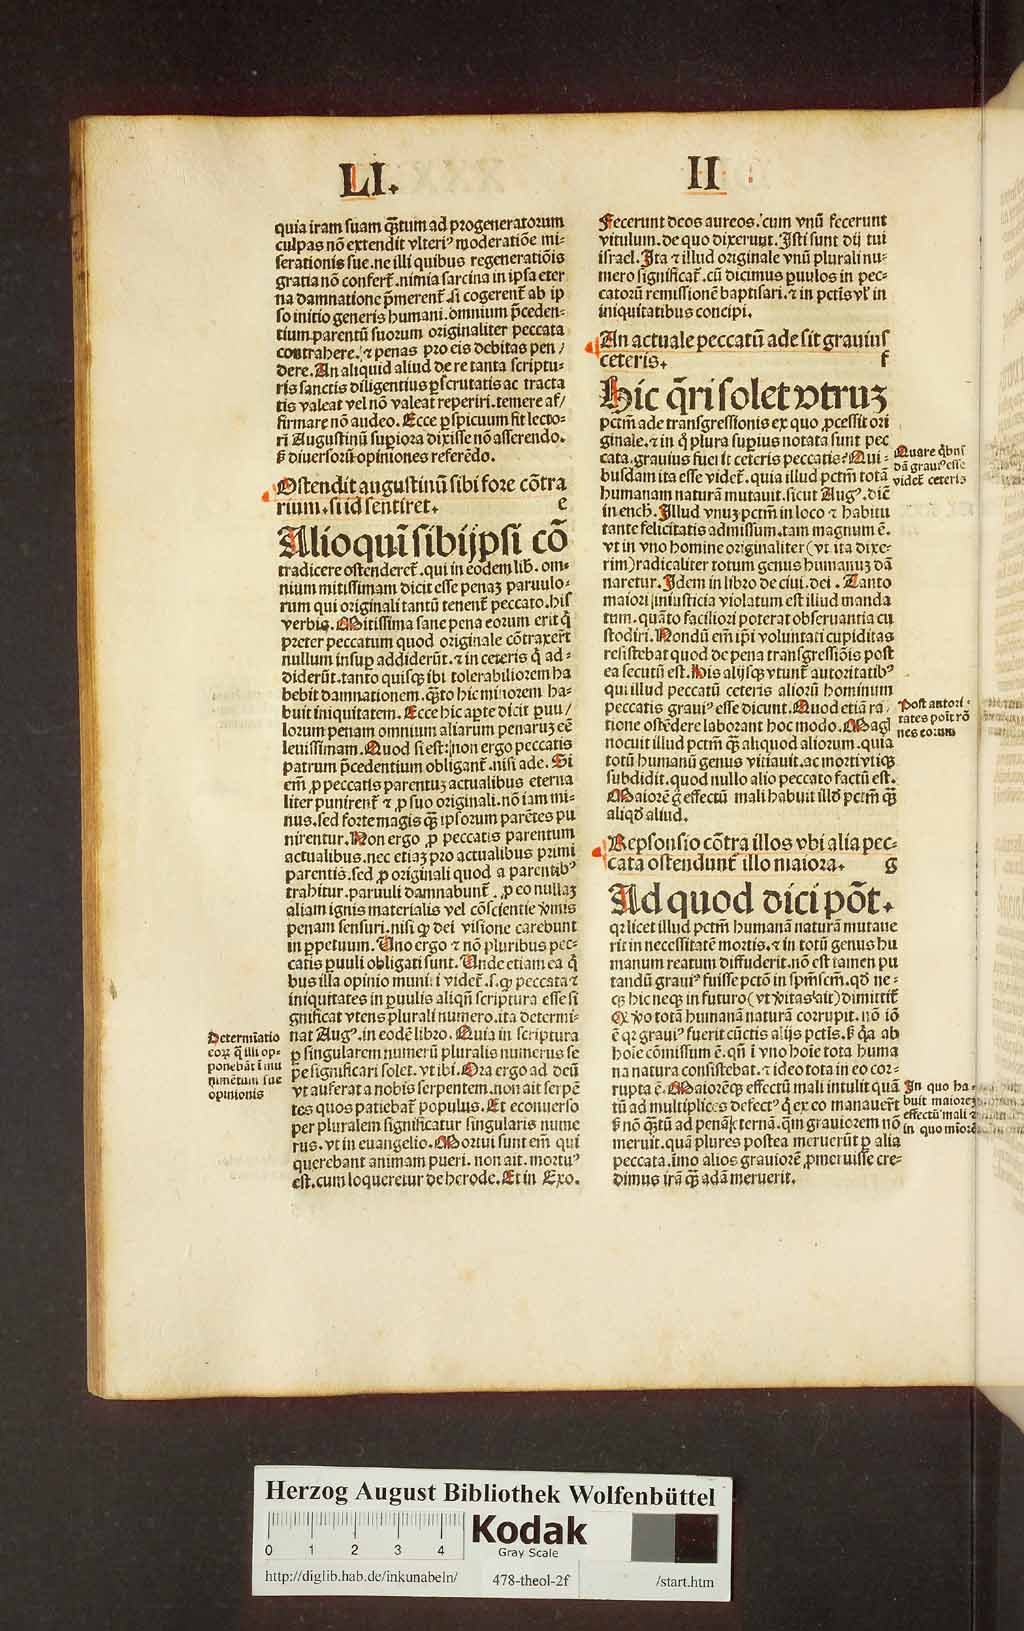 LI.
II
quia iram suam q̄tum ad progeneratorum
culpas nō extendit vlteriꝰ moderatiōe mi-
serationis sue. ne illi quibus regenerationis
gratia nō confert̄. nimia sarcina in ipsa eter
na damnatione p̄merent̄. si cogerent̄ ab ip
so initio generis humani. omnium p̄ceden-
tium parentū suorum originaliter peccata
contrahere. ⁊ penas pro eis debitas pen/
dere. An aliquid aliud de re tanta scriptu-
ris sanctis diligentius ꝑscrutatis ac tracta
tis valeat vel nō valeat reperiri. temere af/
firmare nō audeo. Ecce ꝑspicuum fit lecto-
ri Augustinū suꝑiora dixisse nō asserendo.
ꝭ diuersorū opiniones referēdo.
Ostendit augustinū sibi fore cōtra
rium. si id sentiret. e
Alioquī sibijpsi cō
tradicere ostenderet̄. qui in eodem lib̄. om-
nium mitissimam dicit esse penaꝫ paruulo-
rum qui originali tantū tenent̄ peccato. his
verbis. Mitissima sane pena eorum erit q̄
preter peccatum quod originale cōtraxert̄
nullum insuꝑ addiderūt. ⁊ in ceteris q̄ ad-
diderūt. tanto quisqꝫ ibi tolerabiliorem ha
bebit damnationem. q̄to hic minorem ha-
buit iniquitatem. Ecce hic aꝑte dicit ꝑuu/
lorum penam omnium aliarum penaruꝫ eē
leuissimam. Quod si est: non ergo peccatis
patrum p̄cedentium obligant̄. nisi ade. Si
em̄ ꝓ peccatis parentuꝫ actualibus eterna
liter punirent̄ ⁊ ꝓ suo originali. nō iam mi-
nus. sed forte magis q̄ꝫ ipsorum parētes pu
nirentur. Non ergo ꝓ peccatis parentum
actualibus. nec etiaꝫ pro actualibus primi
parentis. sed ꝓ originali quod a parentibꝰ
trahitur. paruuli damnabunt̄. ꝓ eo nullaꝫ
aliam ignis materialis vel cōscientie v̄mis
penam sensuri. nisi ꝙ dei visione carebunt
in ꝑpetuum. Uno ergo ⁊ nō pluribus pec-
catis ꝑuuli obligati sunt. Unde etiam ea q̄
bus illa opinio muniri videt̄. s. ꝙ peccata ⁊
iniquitates in ꝑuulis aliqn̄ scriptura esse si
gnificat vtens plurali numero. ita determi-
nat Augꝰ. in eodē libro. Quia in scriptura
ꝑ singularem numerū pluralis numerus se
ꝑe significari solet. vt ibi. Ora ergo ad deū
vt auferat a nobis serpentem. non ait serpē
tes quos patiebat̄ populus. Et econuerso
per pluralem significatur singularis nume
rus. vt in euangelio. Mortui sunt em̄ qui
querebant animam pueri. non ait. mortuꝰ
est. cum loqueretur de herode. Et in Exo.
Determīatio
eoꝝ q̄ illi op-
ponebāt ī mu
nimētum sue
opinionis
Fecerunt deos aureos. cum vnū fecerunt
vitulum. de quo dixerunt. Isti sunt dij tui
israel. Ita ⁊ illud originale vnū plurali nu-
mero significat̄. cū dicimus ꝑuulos in pec-
catorū remissionē baptisari. ⁊ in pctīs vl̓ in
iniquitatibus concipi.
An actuale peccatū ade sit grauius
ceteris. f
Hic q̄ri solet vtruꝫ
pctm̄ ade transgressionis ex quo ꝓcessit ori
ginale. ⁊ in q̄ plura suꝑius notata sunt pec
cata. grauius fuerit ceteris peccatis? Qui-
busdam ita esse videt̄. quia illud pctm̄ totā
humanam naturā mutauit. sicut Augꝰ. dic̄
in ench̄. Illud vnuꝫ pctm̄ in loco ⁊ habitu
tante felicitatis admissum. tam magnum ē.
vt in vno homine originaliter (vt ita dixe-
rim) radicaliter totum genus humanuꝫ dā
naretur. Idem in libro de ciui. dei. Tanto
maiori iniusticia violatum est illud manda
tum. quāto faciliori poterat obseruantia cu
stodiri. Nondū em̄ ip̄i voluntati cupiditas
resistebat quod de pena transgressiōis post
ea secutū est. His alijsqꝫ vtunt̄ autoritatibꝰ
qui illud peccatū ceteris aliorū hominum
peccatis grauiꝰ esse dicunt. Quod etiā ra
tione ostēdere laborant hoc modo. Magꝭ
nocuit illud pctm̄ q̄ꝫ aliquod aliorum. quia
totū humanū genus vitiauit. ac morti vtiqꝫ
subdidit. quod nullo alio peccato factū est.
Maiorē g̊ effectū mali habuit illd̓ pctm̄ q̄ꝫ
aliqd̓ aliud.
Repsonsio cōtra illos vbi alia pec-
cata ostendunt̄ illo maiora. g
Ad quod dici pōt.
qꝛ licet illud pctm̄ humanā naturā mutaue
rit in necessitatē mortis. ⁊ in totū genus hu
manum reatum diffuderit. nō est tamen pu
tandū grauiꝰ fuisse pctō in sp̄m̄scm̄. qd̓ ne-
qꝫ hic neqꝫ in futuro (vt v̓itas ait) dimittit̄
Q̓ v̓o totā humanā naturā corrupit. nō iō
ē qꝛ grauiꝰ fuerit cūctis alijs pctīs. ꝭ q̄a ab
hoīe cōmissum ē. qn̄ ī vno hoīe tota huma
na natura consistebat. ⁊ ideo tota in eo cor-
rupta ē. Maiorēqꝫ effectū mali intulit quā
tū ad multiplices defectꝰ q̄ ex eo manauert̄
ꝭ nō q̄tū ad penā eternā. qm̄ grauiorem nō
meruit. quā plures postea meruerūt ꝑ alia
peccata. īmo alios grauiorē ꝓmeruisse cre-
dimus irā q̄ꝫ adā meruerit.
Quare q̄bus
dā grauiꝰ esse
videt̄ ceteris
Post autori-
tates poīt rō
nes eorum
In quo ha-
buit maiorē
effectū mali ⁊
in quo miorē
Herzog August Bibliothek Wolfenbüttel
0 1 2 3 4
Kodak
Gray Scale
http://diglib.hab.de/inkunabeln/
478-theol-2f
/start.htm